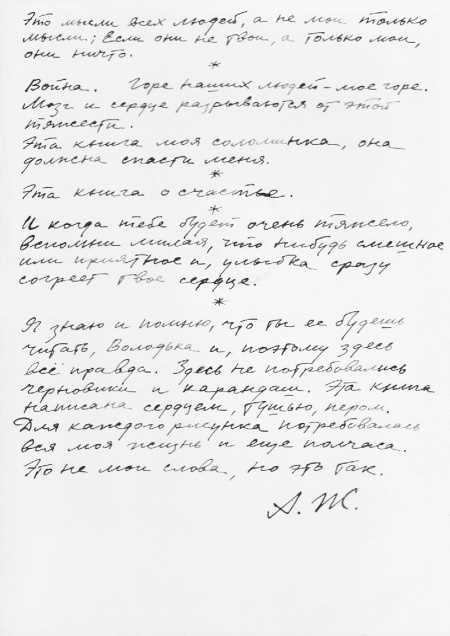 Это мысли всех людей, а не мои только
мысли; Если они не твои, а только мои,
они ничто.
*
Война. Горе наших людей – мое горе.
Мозг и сердце разрываются от этой
тяжести.
Эта книга моя соломинка, она
должна спасти меня.
*
Эта книга о счастье.
*
И когда тебе будет очень тяжело,
вспомни милая, что нибудь смешное
или приятное и, улыбка сразу
согреет твое сердце.
*
Я знаю и помню, что ты ее будешь
читать, Володька и, поэтому здесь
всё правда. Здесь не потребовались
черновики и карандаш. Эта книга
написана сердцем, тушью, пером.
Для каждого рисунка потребовалась
вся моя жизнь и еще полчаса.
Это не мои слова, но это так.
А. Ж.